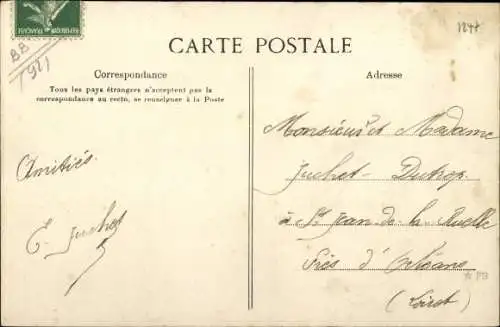 RÉPUBLIQUE FRANÇAISE
BB
1921
1247
CARTE POSTALE
Correspondance
Tous les pays étrangers n'acceptent pas la
correspondance au recto, se renseigner à la Poste
Amitiés.
E. Juchet
Adresse
Monsieur et Madame
Juchet-Dutrop
à St Jean-de-la Ruelle
Près d'Orléans
(Loiret)